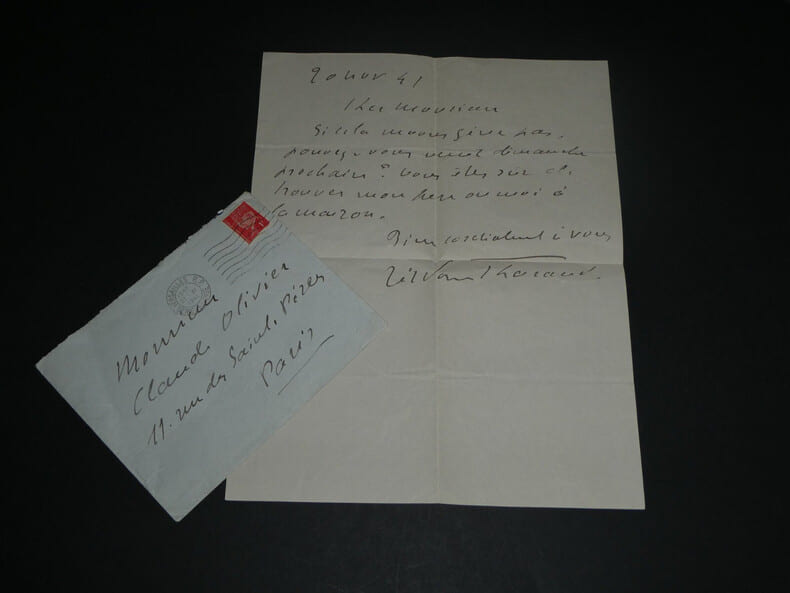 20 nov 41
Cher Monsieur
Si cela ne vous gêne pas,
pouvez-vous venir dimanche
prochain? Vous êtes sûr de
trouver mon père ou moi à
la maison.
Bien cordialement à vous
Monsieur
Claude Olivier
11. rue des Saints. Pères
Paris